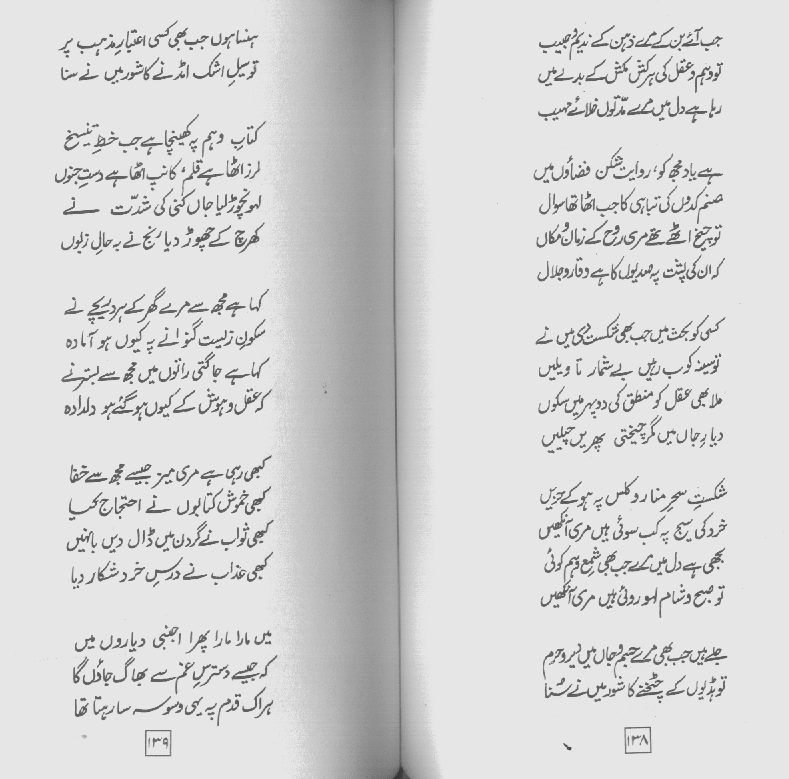 جب آئے بن کے مرے ذہن کے ندیم و حبیب
تو وہم و عقل کی ہر کش مکش کے بدلے میں
رہا ہے دل میں مرے مدّتوں خلائے مہیب
ہے یاد مجھ کو، روایت شکن فضاؤں میں
صنم کدوں کی تباہی کا جب اٹھا تھا سوال
تو چیخ اٹھے تھے مری روح کے زمان و مکاں
کہ ان کی پشت پہ صدیوں کا ہے وقار و جلال
کسی کو بحث میں جب بھی شکست دی میں نے
تو سینہ کوب رہیں بے شمار تاویلیں
ملا بھی عقل کو منطق کی دوپہر میں سکوں
دیارِ جاں میں مگر چیختی پھریں چیلیں
شکستِ سحرِ منار و کلس پہ ہو کے حزیں
خرد کی سیج پہ کب سوئی ہیں مری آنکھیں
بجھی ہے دل میں مرے جب بھی شمعِ وہم کوئی
تو صبح و شام لہو روئی ہیں مری آنکھیں
جلے ہیں جب بھی مرے جسم و جاں میں دیر و حرم
تو ہڈیوں کے چٹخنے کا شور میں نے سُنا
۱۳۸
ہنسا ہوں جب بھی کسی اعتبارِ مذہب پر
تو سیلِ اشک امڈنے کا شور میں نے سنا
کتابِ وہم پہ کھینچا ہے جب خطِ تنسیخ
لرز اٹھا ہے قلم، کانپ اٹھا ہے دستِ جنوں
لہو نچوڑ لیا جاں کنی کی شدّت نے
کھرچ کے چھوڑ دیا رنج نے بہ حالِ زبوں
کہا ہے مجھ سے مرے گھر کے سرد دریچے نے
سکونِ زیست گنوانے پہ کیوں ہو آمادہ
کہا ہے جاگتی راتوں میں مجھ سے بستر نے
کہ عقل و ہوش کے کیوں ہو گئے ہو دلدادہ
کبھی رہی ہے مری میز جیسے مجھ سے خفا
کبھی خموش کتابوں نے احتجاج کیا
کبھی ثواب نے گردن میں ڈال دیں بانہیں
کبھی عذاب نے درسِ خرد شکار دیا
میں مارا مارا پھرا اجنبی دیاروں میں
کہ جیسے دسترسِ غم سے بھاگ جاؤں گا
ہر اک قدم پہ یہی وسوسہ سا رہتا تھا
۱۳۹